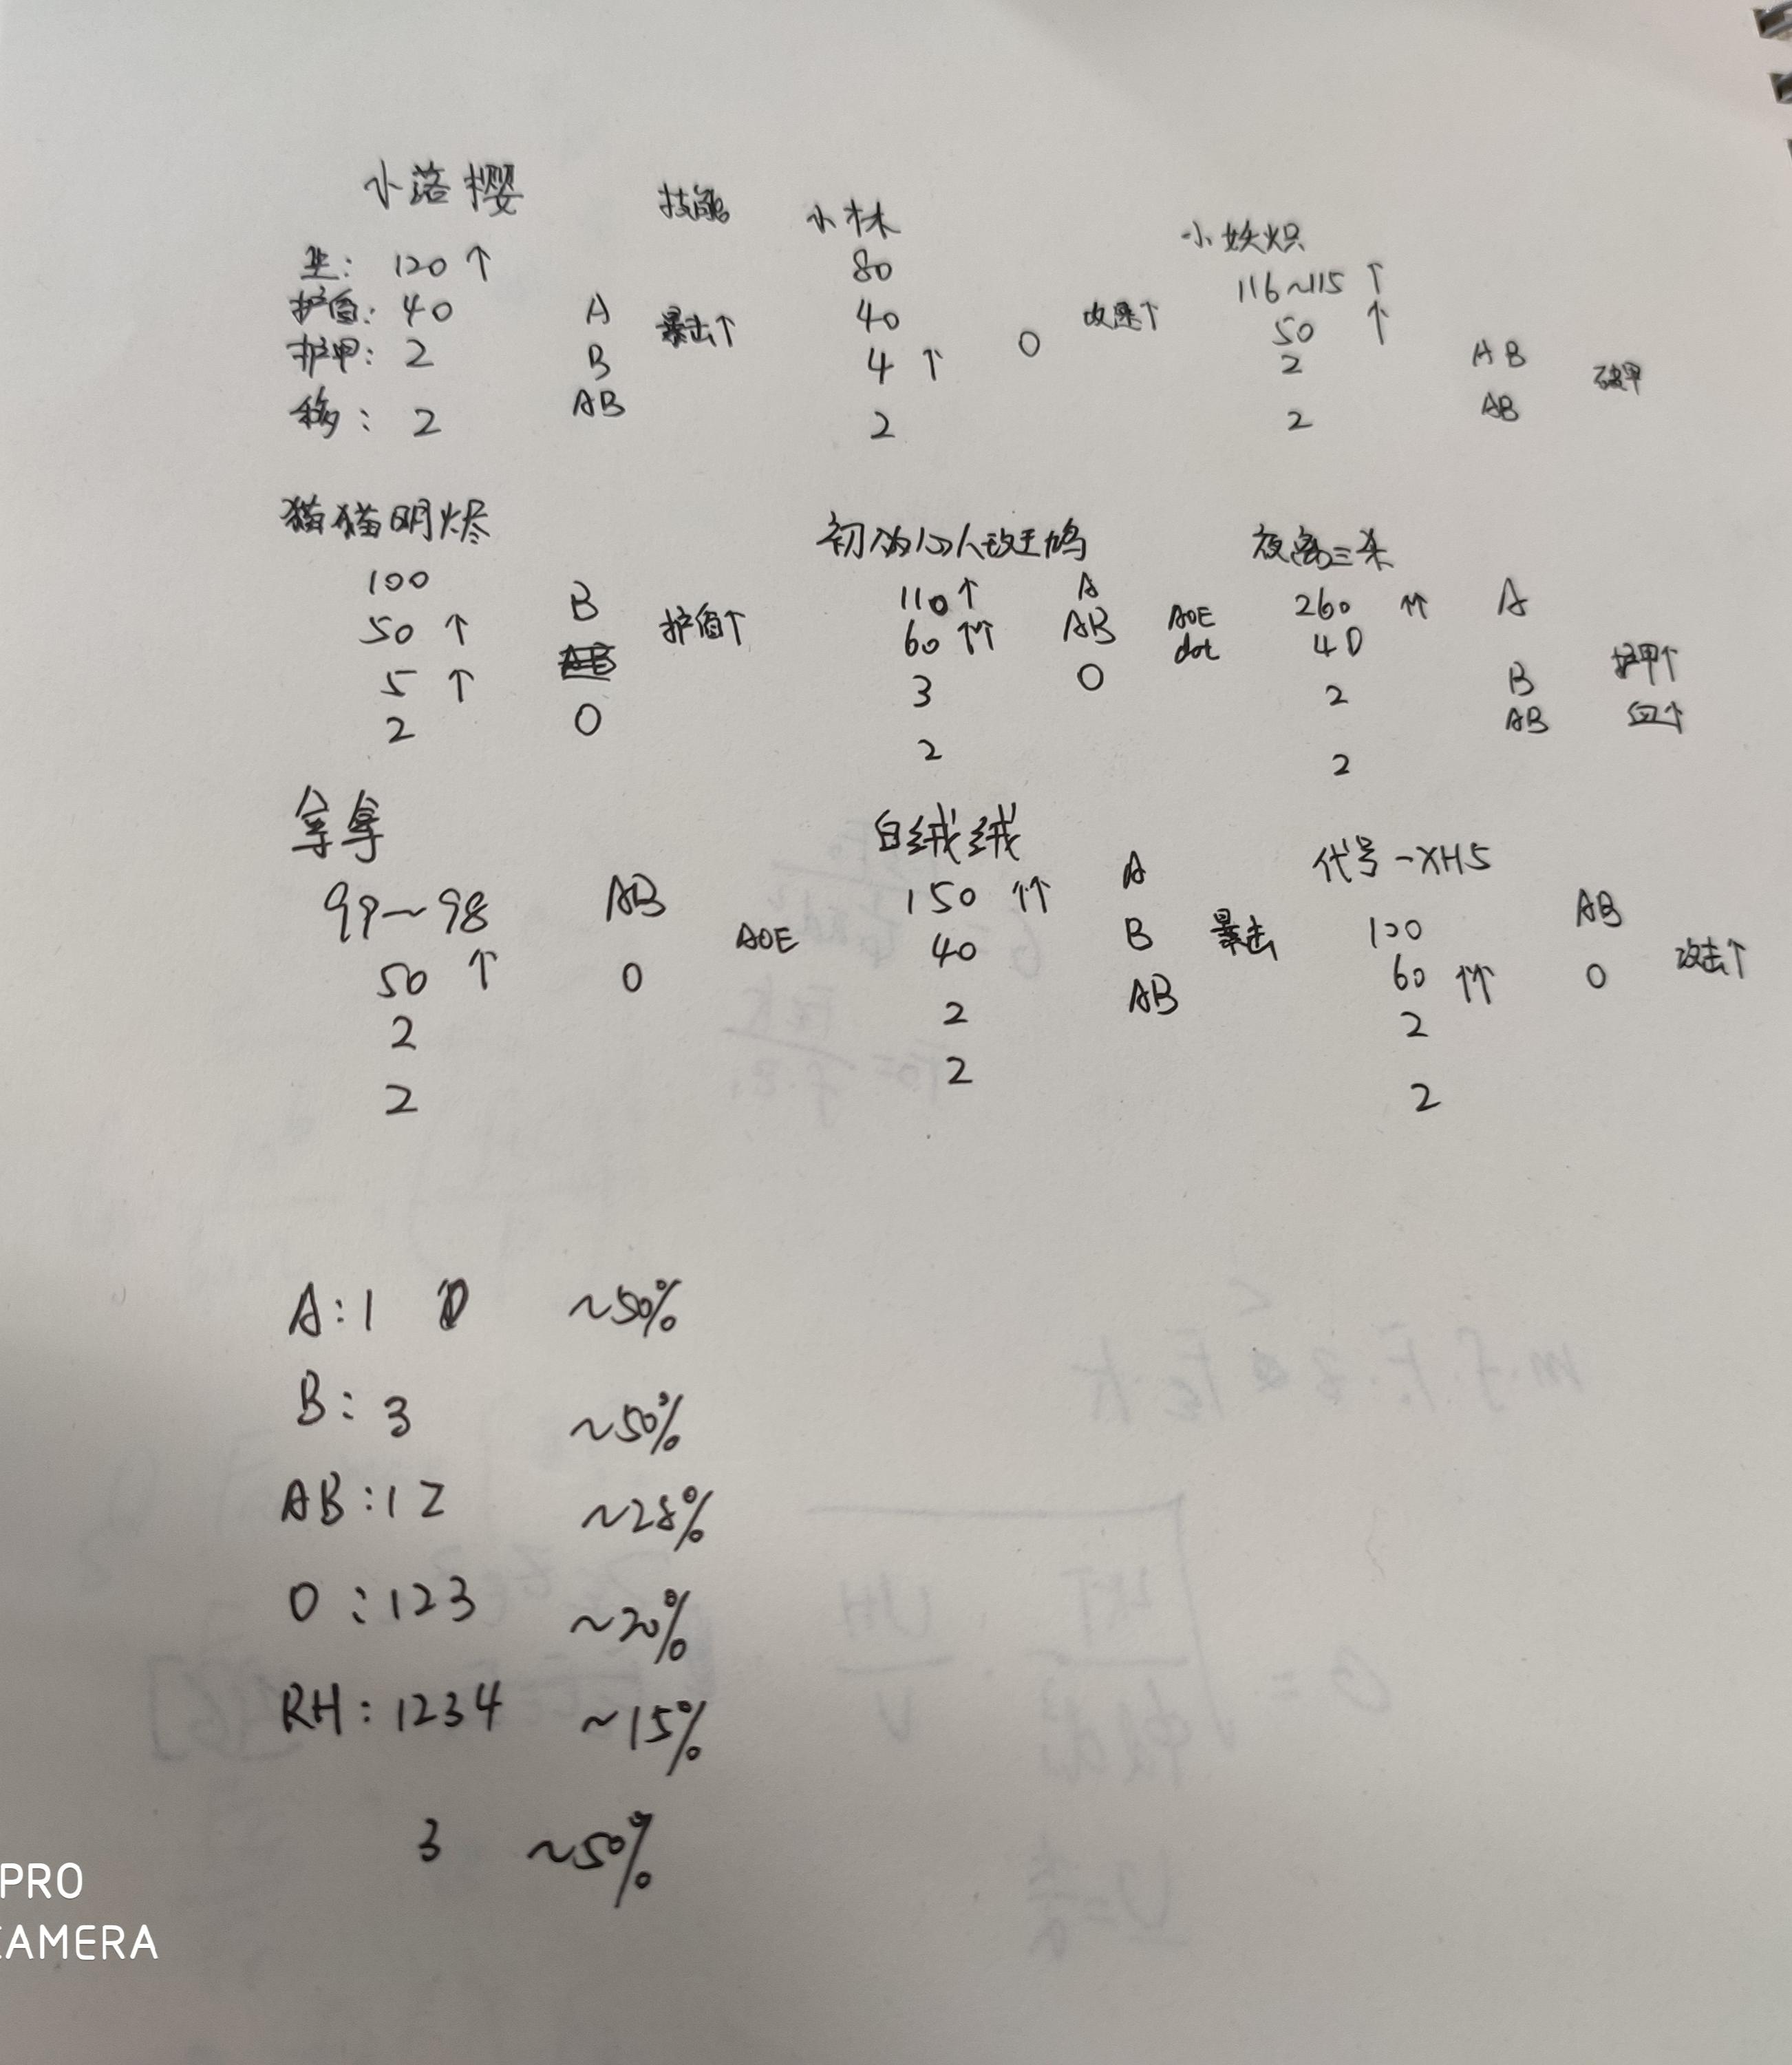 小落樱 技能 小林 小妖炽
血: 120 ↑ 80 116~115 ↑
护值: 40 A 暴击↑ 40 攻速↑ 50 ↑
护甲: 2 B 4 ↑ O 2 AB 破甲
移: 2 AB 2 2 AB
猫猫明烬 夜离三杀
100 B 110 ↑ A AOE 260 ↑↑ A
50 ↑ 护值↑ 60 ↑↑ AB dot 40 护甲↑
5 ↑ 3 O 2 B 血↑
2 O 2 2 AB
拿拿 白绒绒 代号-XH5
99~98 AB 150 ↑↑ A 120 AB
50 ↑ O AOE 40 B 暴击 60 ↑↑ O 攻击↑
2 2 AB 2
2 2 2
A:1 ~50%
B: 3 ~50%
AB:12 ~28%
O:123 ~20%
RH:1234 ~15%
3 ~50%
PRO
CAMERA